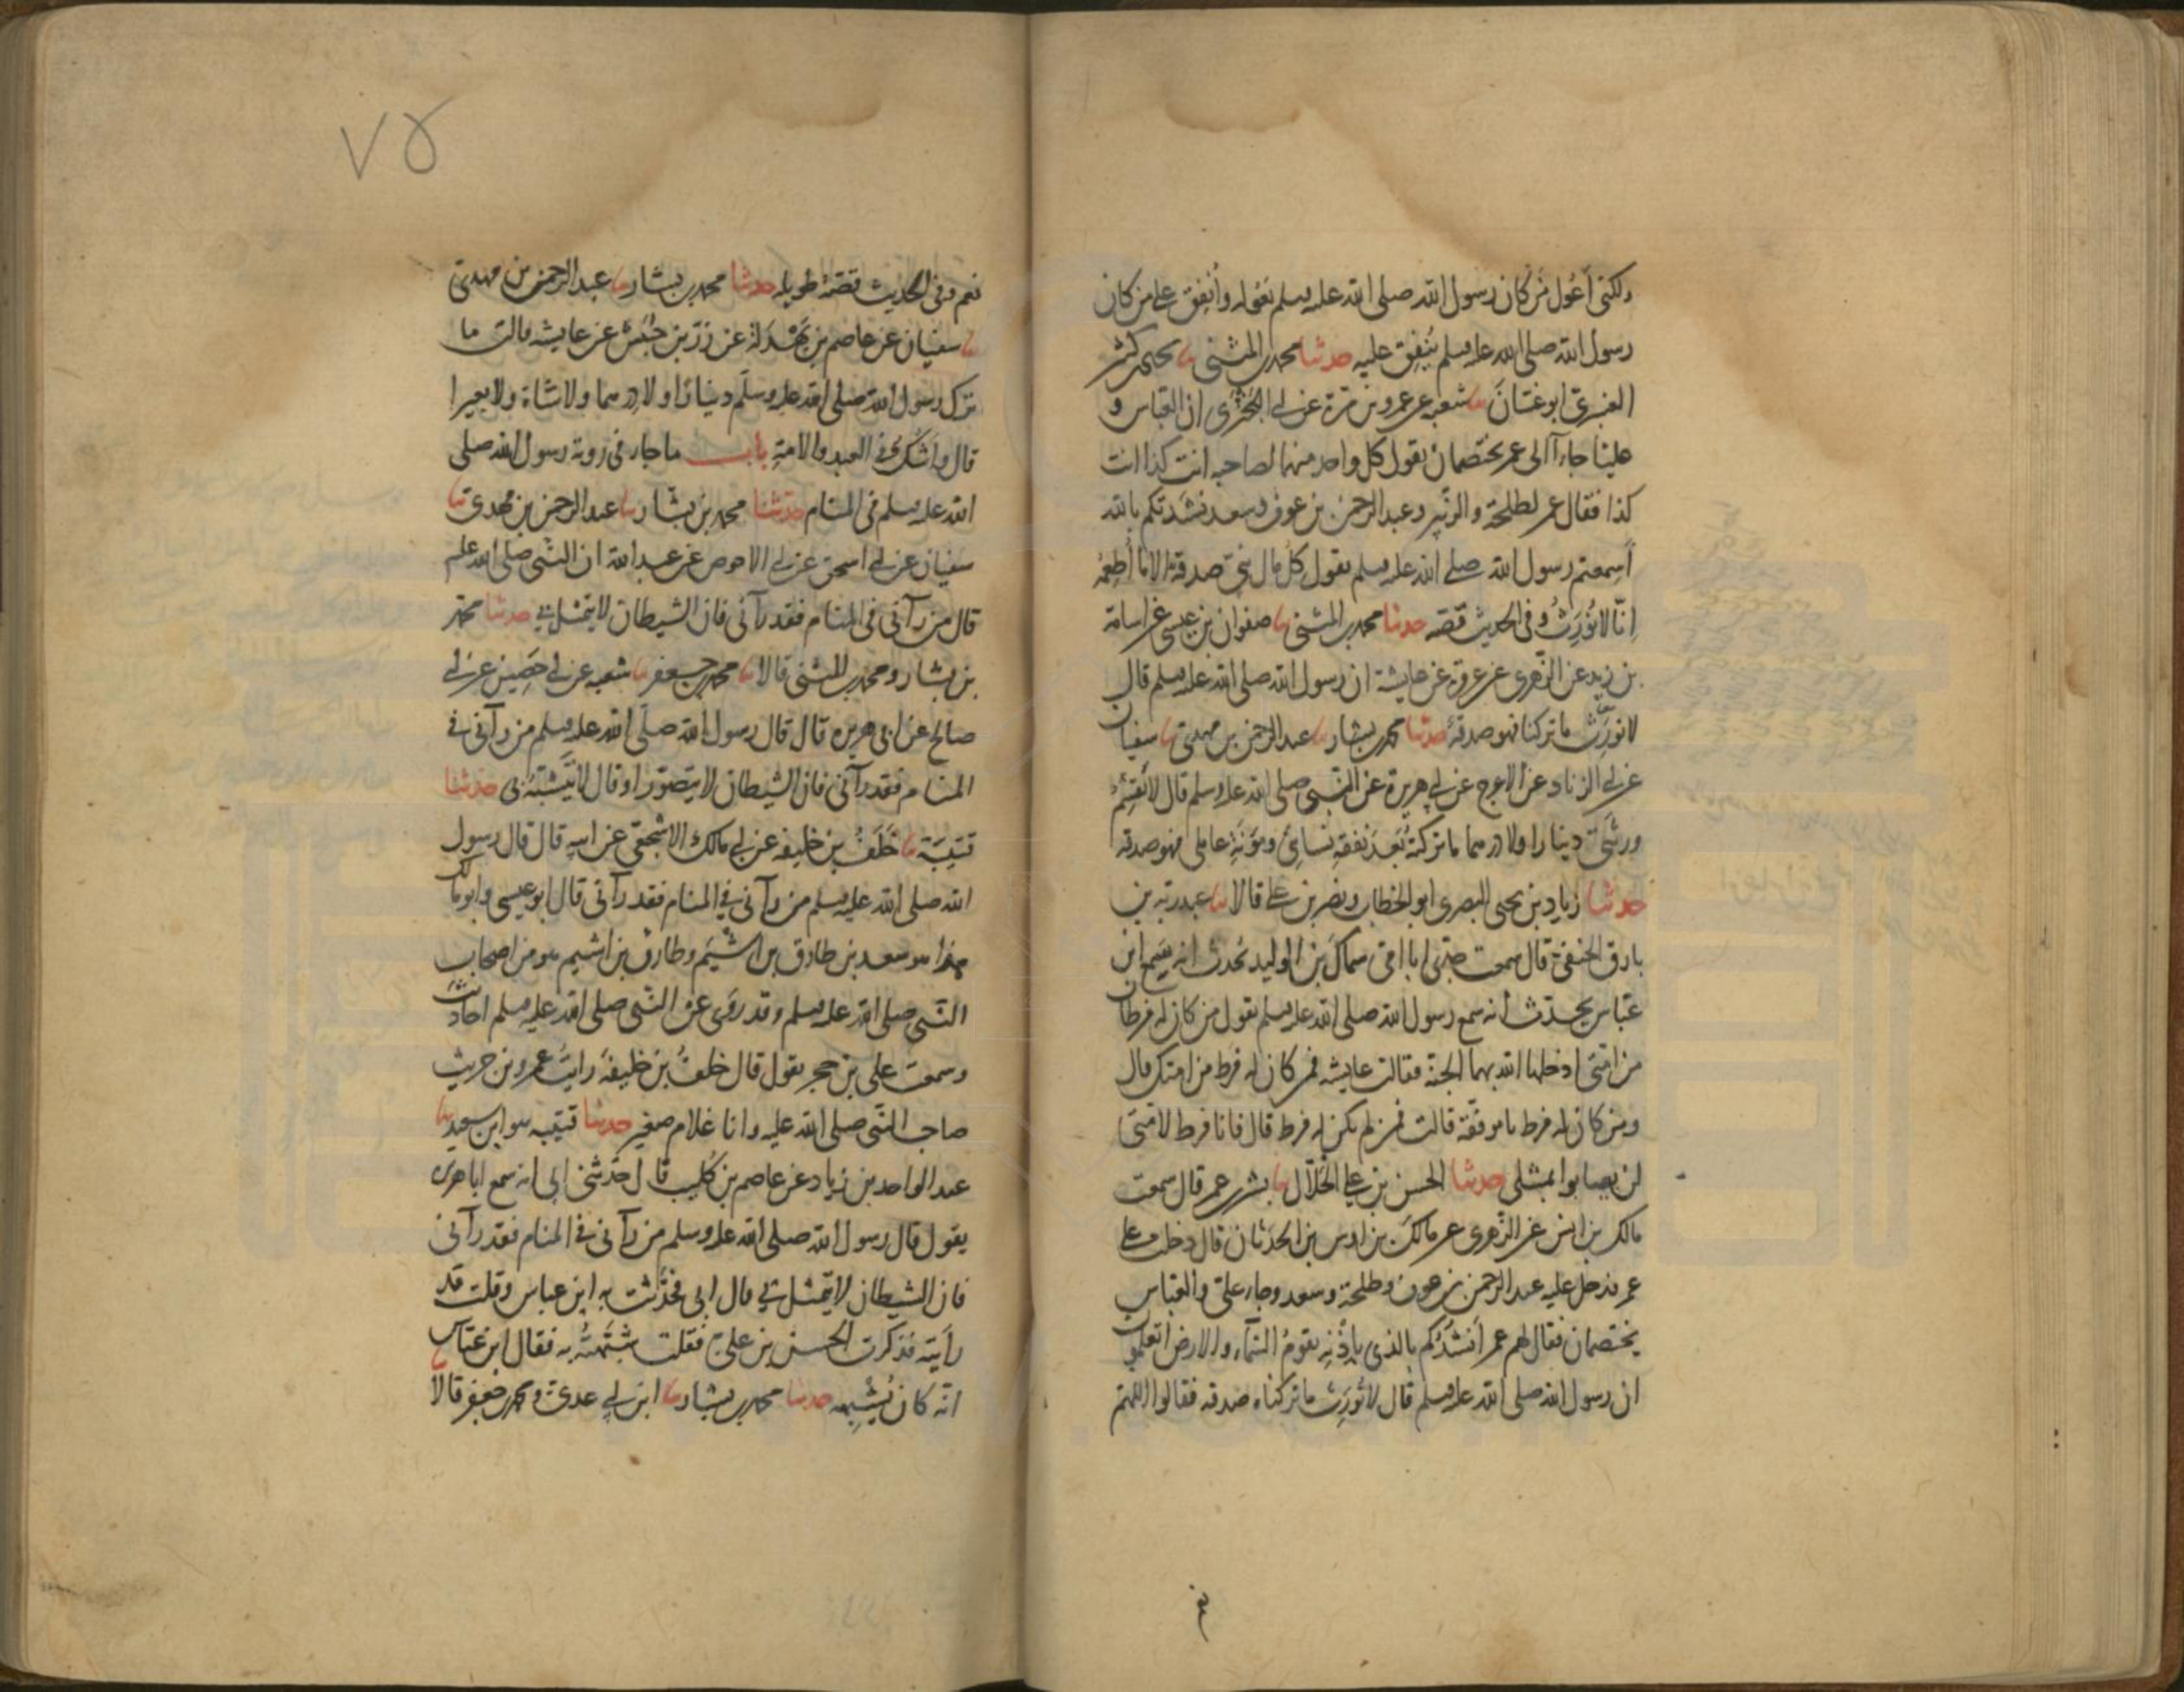 ولكني أعُول مَن كان رسول الله صلى الله عليه وسلم يعوله وأُنفِق على من كان
رسول الله صلى الله عليه وسلم يُنفِق عليه حدثنا محمد بن المثنى ثنا يحيى بن كثير
العنبريّ ابو غسّانَ ثنا شعبه عن عمرو بن مرة عن ابي البَختَري ان العباس و
عليّا جاءآ الى عمر يختصمان يقول كل واحد منهما لصاحبه انت كذا انت
كذا فقال عمر لطلحة والزّبير وعبد الرحمن بن عوف وسعد نشدتكم بالله
أسمعتم رسول الله صلى الله عليه وسلم يقول كل مال نبيّ صدقة الا ما أَطعمَهُ
إنّا لا نُورَثُ وفي الحديث قصّه حدثنا محمد بن المثنى ثنا صفوان بن عيسى عن اسامة
بن زيد عن الزّهري عن عروة عن عايشة ان رسول الله صلى الله عليه وسلم قال
لا نورَث ما تركنا فهو صدقة حدثنا محمد بن بشار ثنا عبد الرحمن بن مهديّ ثنا سفيان
عن ابي الزناد عن الاعرج عن ابي هريرة عن النّبي صلى الله عليه وسلم قال لا يَقسِمُ
ورثَتي دينارا ولا درهما ما تركتُ بَعدَ نفقة نسائي ومؤنَةِ عاملي فهو صدقه
حدثنا زياد بن يحيى البصري ابو الخطاب ونصر بن علي قالا ثنا عبد ربه بن
بارق الحنفيّ قال سمعت جدّي ابا امّي سماكَ بنَ الوليد يُحدث انه سَمِع ابن
عبّاس يحدّث أنه سمع رسول الله صلى الله عليه وسلم يقول من كان له فرطان
من امّتي ادخله الله بهما الجنة فقالت عايشه فمن كان له فرط من امتك قال
ومن كان له فرط يا موفّقة قالت فمن لم يكن له فرط قال فانا فرط لامّتي
لن يصابوا بمثلي حدثنا الحسن بن علي الخَلّال ثنا بشر بن عمر قال سمعت
مالك بن انس عن الزّهري عن مالك بن اوس بن الحَدَثان قال دخلت على
عمر فدخل عليه عبد الرحمن بن عوف وطلحة وسعد وجاء عليّ والعباس
يختصمان فقال لهم عمر أَنشُدُكم بالذي بإذنِه تقومُ السّماء والارض اتعلمون
ان رسول الله صلى الله عليه وسلم قال لا نُورَث ما تركناه صدقه فقالوا اللهمّ
نعم وفي الحديث قصّة طويله حدثنا محمد بن بشار ثنا عبد الرحمن بن مهديّ
ثنا سفيان عن عاصم بن بَهْدَلة عن زرّ بن حُبَيْش عن عايشه قالت ما
ترك رسول الله صلى الله عليه وسلّم دينارًا ولا درهما ولا شاة ولا بعيرا
قال واشك في العبد والامة باب ما جاء في رؤية رسول الله صلى
الله عليه وسلم في المنام حدّثنا محمد بن بشّار ثنا عبد الرحمن بن مهدي ثنا
سفيان عن ابي اسحق عن ابي الاحوص عن عبد الله ان النّبي صلى الله عليه
قال من رآني في المنام فقد رآني فان الشيطان لا يتمثل بي حدثنا محمد
بن بشار ومحمد بن المثنى قالا ثنا محمد بن جعفر ثنا شعبه عن ابي حَصِين عن ابي
صالح عن ابي هريره قال قال رسول الله صلى الله عليه وسلم من رآني في
المنام فقد رآني فان الشيطان لا يتصوّر او قال لا يتشبّهُ بي حدثنا
قتيبَة ثنا خَلَفُ بن خليفه عن ابي مالك الاشجعي عن ابيه قال قال رسول
الله صلى الله عليه وسلم من رآني في المنام فقد رآني قال ابو عيسى وابو مالك
هذا هو سعد بن طارق بن اَشْيَم وطارق بن اشيم هو من اصحاب
النّبي صلى الله عليه وسلم وقد روَى عن النّبي صلى الله عليه وسلم احاديثَ
وسمعت علي بن حجر يقول قال خلفُ بن خليفةَ رايتُ عمرو بن حريث
صاحب النّبي صلى الله عليه وانا غلام صغير حدثنا قتيبه هو ابن سعيد ثنا
عبد الواحد بن زياد عن عاصم بن كُليب قال حدّثني ابي انه سمع ابا هريره
يقول قال رسول الله صلى الله عليه وسلم من رآني في المنام فقد رآني
فان الشيطان لا يتمثّل بي قال ابي فحدّثت به ابن عباس وقلت قد
رأيته فذكرت الحسن بن عليّ فقلت شبّهتُه به فقال ابن عبّاس
انّه كان يُشبِهه حدثنا محمد بن بشار ثنا ابن ابي عديّ ومحمد بن جعفر قالا
نعم
٧٥